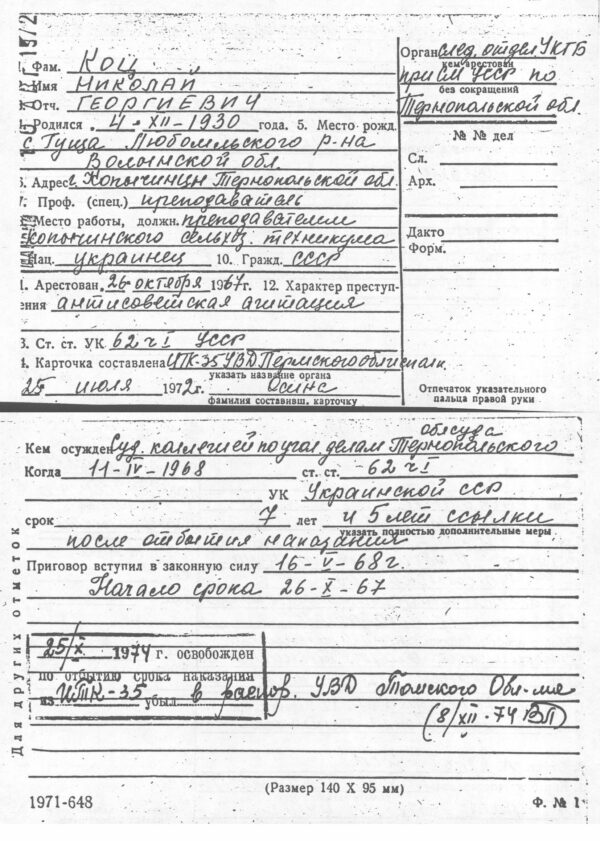 Фам. Коц
Имя Николай
Отч. Георгиевич
Родился 4-XII-1930 года. 5. Место рожд.
с Туща Любомльского р-на
Волынской обл.
6. Адрес с Копычинцы Тернопольской обл.
7. Проф. (спец.) преподаватель
Место работы, должн. преподавателем
Копычинского сельхоз. техникума
Нац. украинец 10. Гражд. СССР
Арестован 26 октября 1967г. 12. Характер преступ-
ения антисоветская агитация
3. Ст. ст. УК 62 ч I УССР
4. Карточка составлена ИТК-35 УВД Пермского облисполк.
указать название органа
25 июля 1972г.
фамилия составивш. карточку
Орган след. отдел УКГБ
кем арестован
при СМ УССР по
без сокращений
Тернопольской обл.
№ № дел
Сл.
Арх.
Дакто
Форм.
Отпечаток указательного
пальца правой руки
облсуда
Кем осужден Суд. коллегией по угол. делам Тернопольского
Когда 11-IV-1968 ст. ст. 62 ч I
УК Украинской ССР
срок 7 лет и 5 лет ссылки
указать полностью дополнительные меры
после отбытия наказания
Приговор вступил в законную силу 16-V-68г.
Начало срока 26-X-67
25/X 1974 г. освобожден
по отбытию срока наказания
из ИТК-35 убыл в распор. УВД Томского Обл-
(8/XII-74 ВП)
Для других отметок
(Размер 140 X 95 мм)
1971-648
Ф. № 1